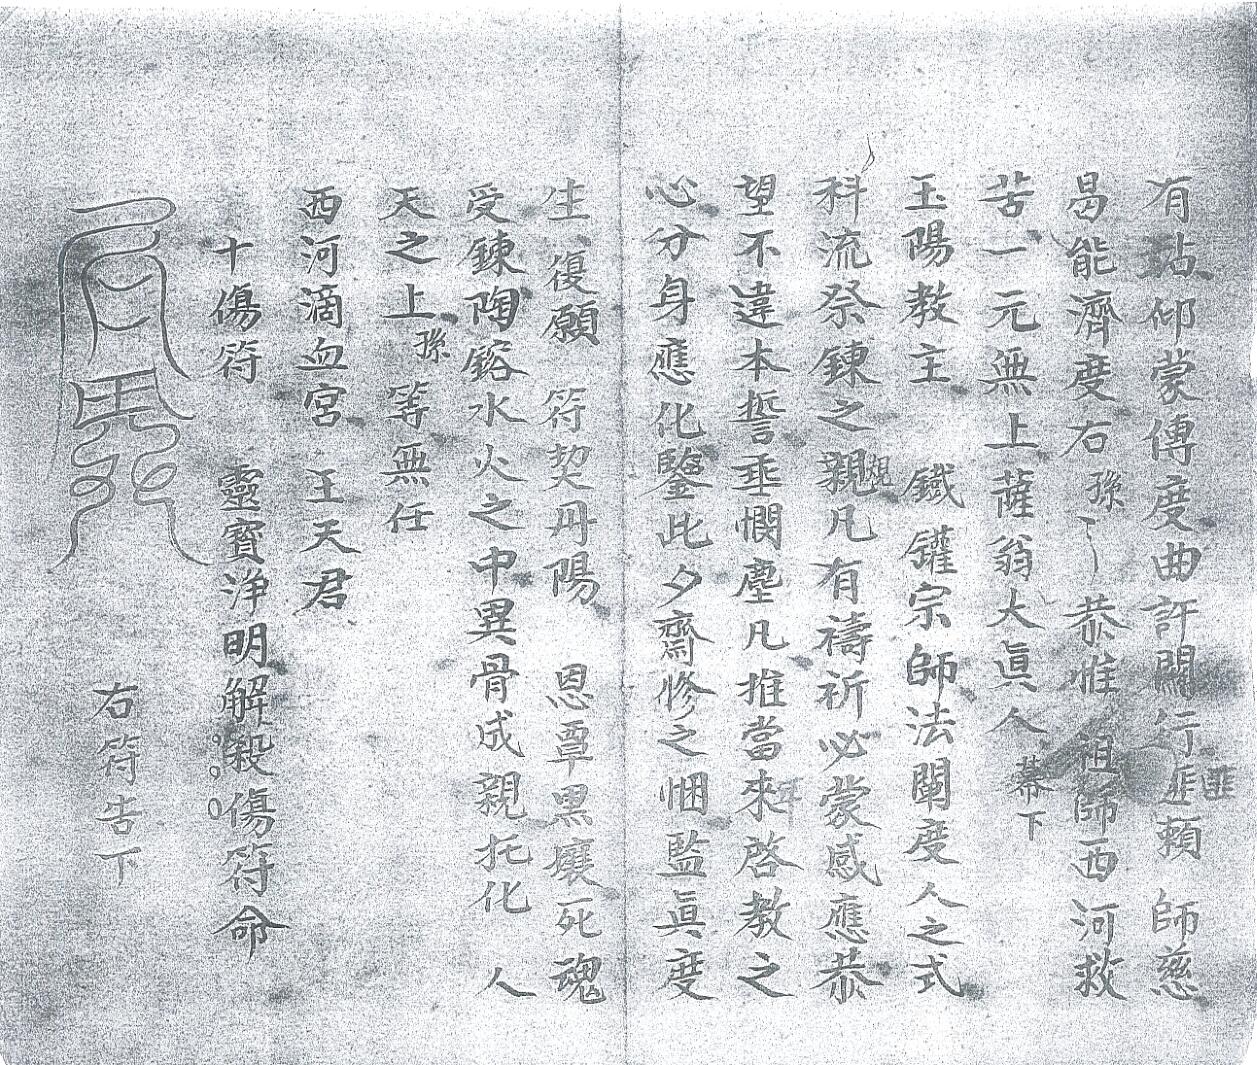 有玷仰蒙傳度曲許闡行匪賴　師慈
曷能濟度右孫〻恭惟祖師西河救
苦一元無上薩翁大眞人幕下
玉陽教主　鐵鑵宗師法闡度人之式
科流祭錬之親凡有禱祈必蒙感應恭
望不違本誓垂憫塵凡推當來啓教之
心分身應化鑒此夕齋修之悃監眞度
生復願　符契丹陽　恩覃黑壤死魂
受錬陶鎔水火之中異骨成親托化　人
天之上孫等無任
西河滴血宮　王天君
十傷符　靈寶淨明解殺傷符命
右符告下